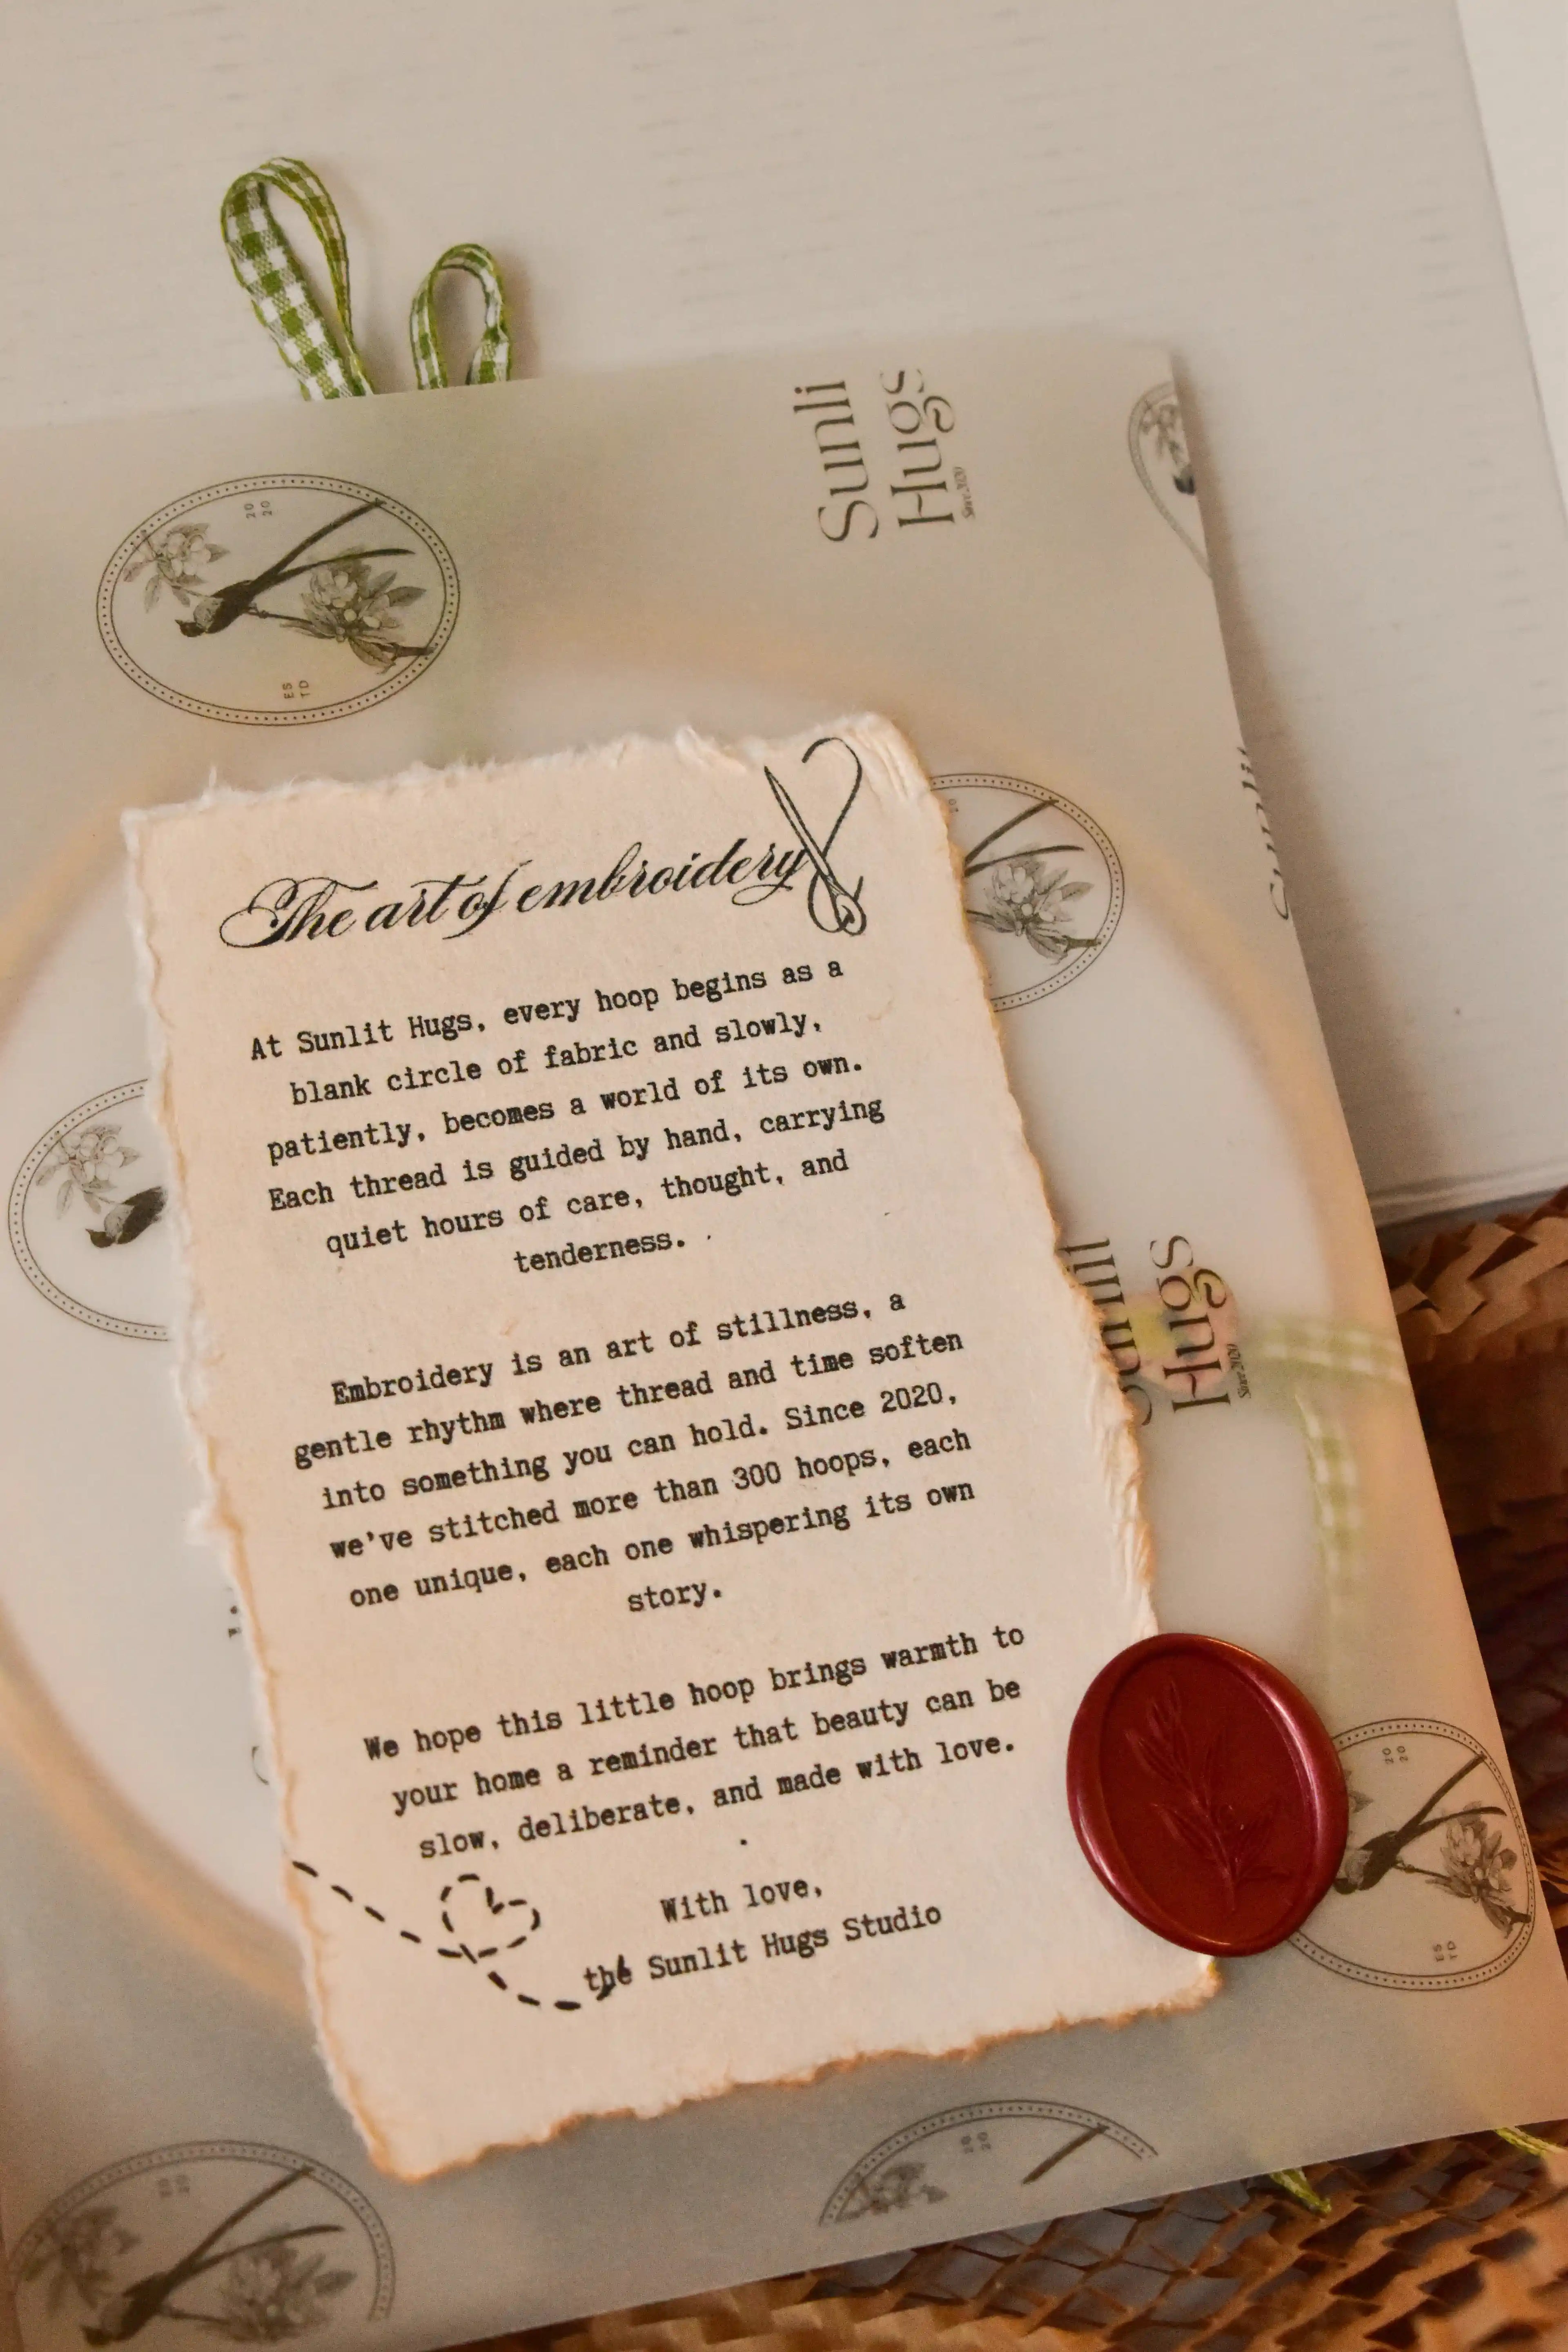 20
20
ES
TD
Sunli
Hugs
Since 2020
Sunlit
The art of embroidery
At Sunlit Hugs, every hoop begins as a
blank circle of fabric and slowly,
patiently, becomes a world of its own.
Each thread is guided by hand, carrying
quiet hours of care, thought, and
tenderness.
Embroidery is an art of stillness, a
gentle rhythm where thread and time soften
into something you can hold. Since 2020,
we've stitched more than 300 hoops, each
one unique, each one whispering its own
story.
We hope this little hoop brings warmth to
your home a reminder that beauty can be
slow, deliberate, and made with love.
With love,
the Sunlit Hugs Studio
Hugs
Since 2020
20
20
ES
TD
20
20
20
20